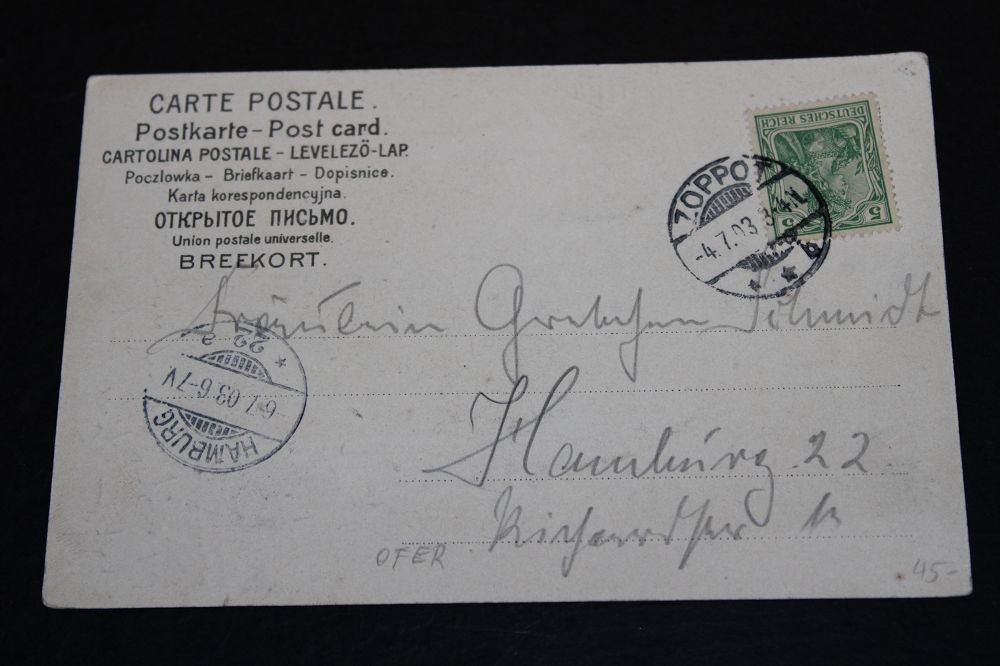 CARTE POSTALE.
Postkarte - Post card.
CARTOLINA POSTALE - LEVELEZÖ-LAP.
Poczlowka - Briefkaart - Dopisnice.
Karta korespondencyjna.
ОТКРЫТОЕ ПИСЬМО.
Union postale universelle.
BREFKORT.
DEUTSCHES REICH
5 5
ZOPPOT
-4.7.03. 3-4N.
* * b
Fräulein Gretchen Schmidt
* 22 a
6.7.03.6-7V
HAMBURG
Hamburg 22.
Richardstr
OFER
45-